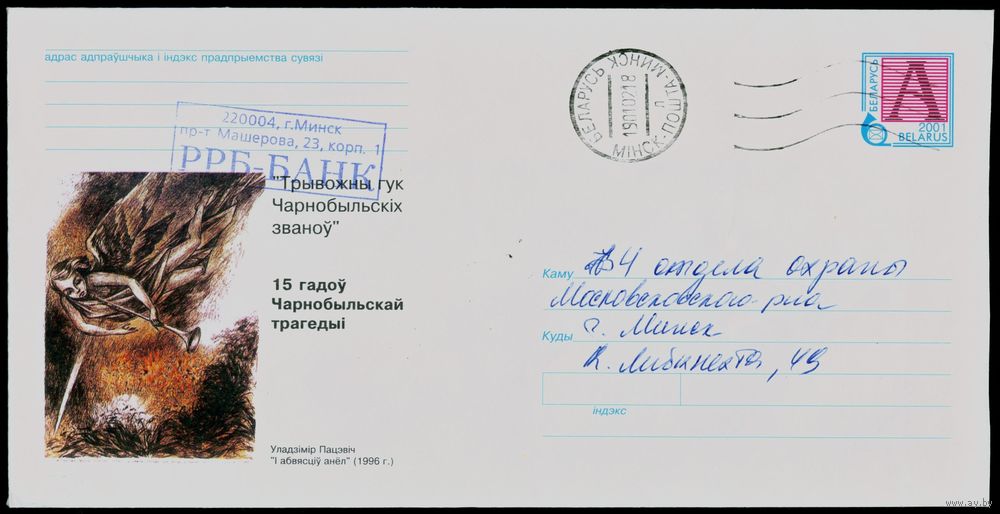 адрас адпраўшчыка і індэкс прадпрыемства сувязі
220004, г.Минск
пр-т Машерова, 23, корп. 1
РРБ-БАНК
"Трывожны гук
Чарнобыльскіх
званоў"
15 гадоў
Чарнобыльскай
трагедыі
Уладзімір Пацэвіч
"І абвясціў анёл" (1996 г.)
БЕЛАРУСЬ МИНСК-ПОЧТАМТ
190102 18
Л
МІНСК
БЕЛАРУСЬ
А
2001
BELARUS
Каму отдела охраны
Московского р-на
Куды г. Минск
К. Либкнехта, 49
індэкс
www.ay.by